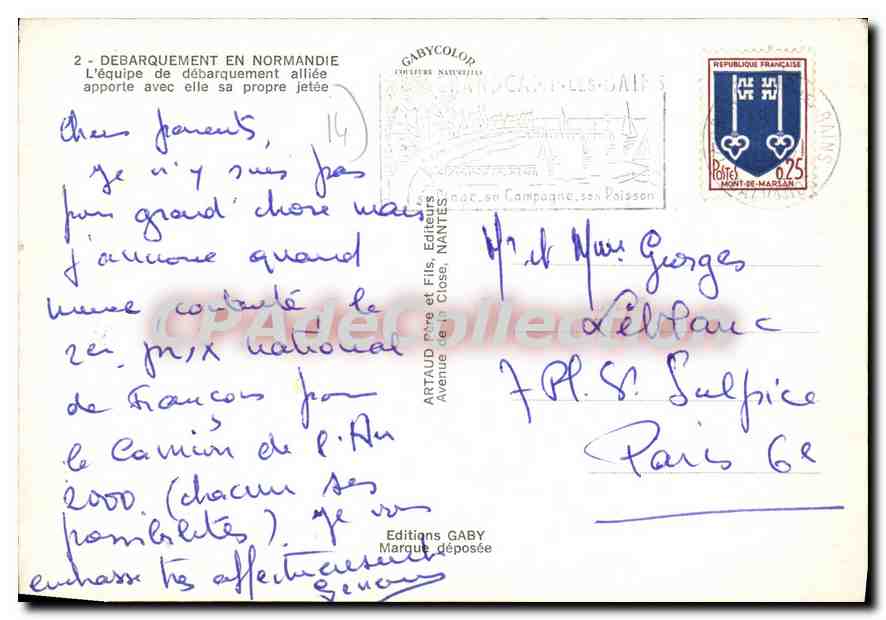 2 - DEBARQUEMENT EN NORMANDIE
L'équipe de débarquement alliée
apporte avec elle sa propre jetée
GABYCOLOR
COULEURS NATURELLES
14
Chers parents,
Je n'y suis pas
pour grand' chose mais
j'annonce quand
meme le
2en prix national
de Français pour
le Camion de l'An
2000 (chacun ses
possibilités). Je vous
embrasse très affectueusement
GRANDCAMP-LES-BAINS
sa Campagne, son Poisson
REPUBLIQUE FRANÇAISE
POSTES 0,25
MONT-DE-MARSAN
BAINS
ARTAUD Père et Fils, Editeurs
Avenue de la Close, NANTES
Mr et Mme Georges
Léblanc
7 Pl. St Sulpice
Paris 6e
Editions GABY
Marque déposée
CPAdeCollection